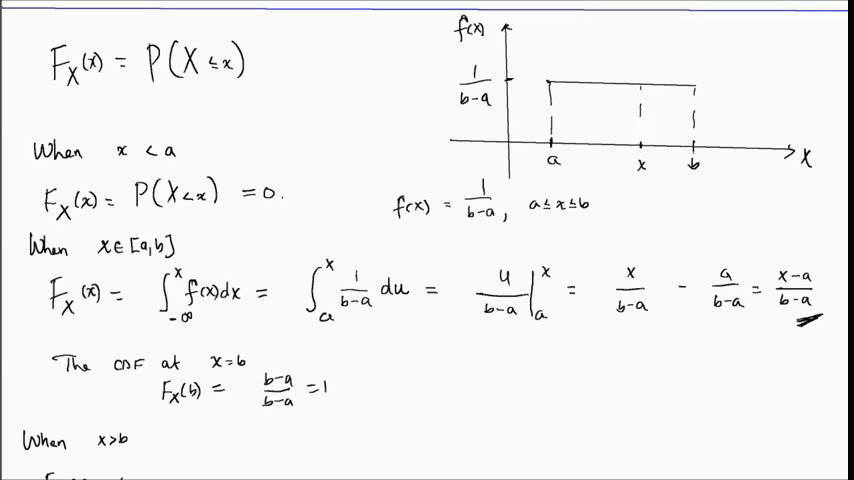 F_X(x) = P(X ≤ x)
f(x)
1/(b-a)
a x b X
When x < a
F_X(x) = P(X < x) = 0.
f(x) = 1/(b-a), a ≤ x ≤ b
When x ∈ [a,b]
F_X(x) = ∫_{-∞}^{x} f(x)dx = ∫_a^x 1/(b-a) du = u/(b-a) |_a^x = x/(b-a) - a/(b-a) = (x-a)/(b-a)
The CDF at x=b
F_X(b) = (b-a)/(b-a) = 1
When x>b